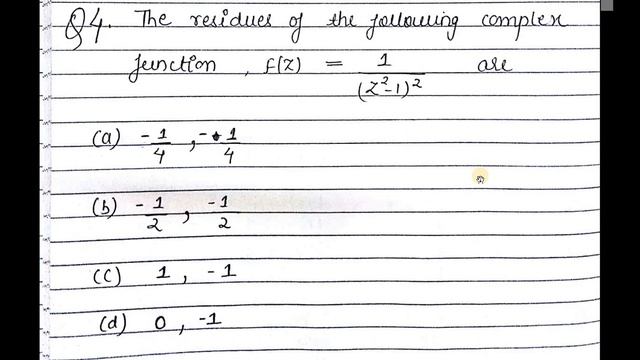 Q4. The residues of the following complex
function, f(z) = 1/(z²-1)² are
(a) -1/4, -1/4
(b) -1/2, -1/2
(c) 1, -1
(d) 0, -1